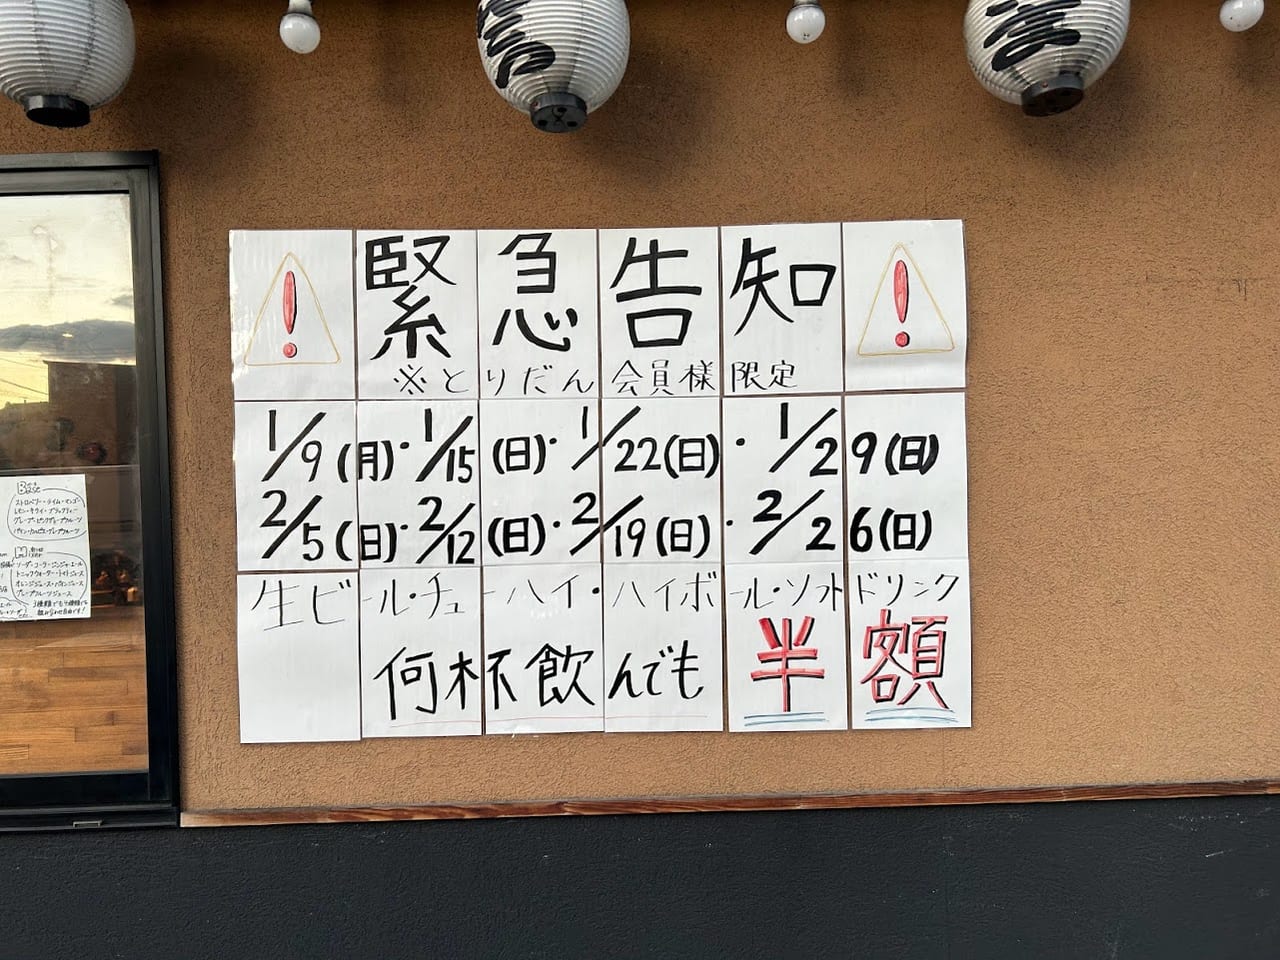 緊急告知
※とりだん会員様限定
1/9(月)・1/15(日)・1/22(日)・1/29(日)
2/5(日)・2/12(日)・2/19(日)・2/26(日)
生ビール・チューハイ・ハイボール・ソフトドリンク
何杯飲んでも半額
Base